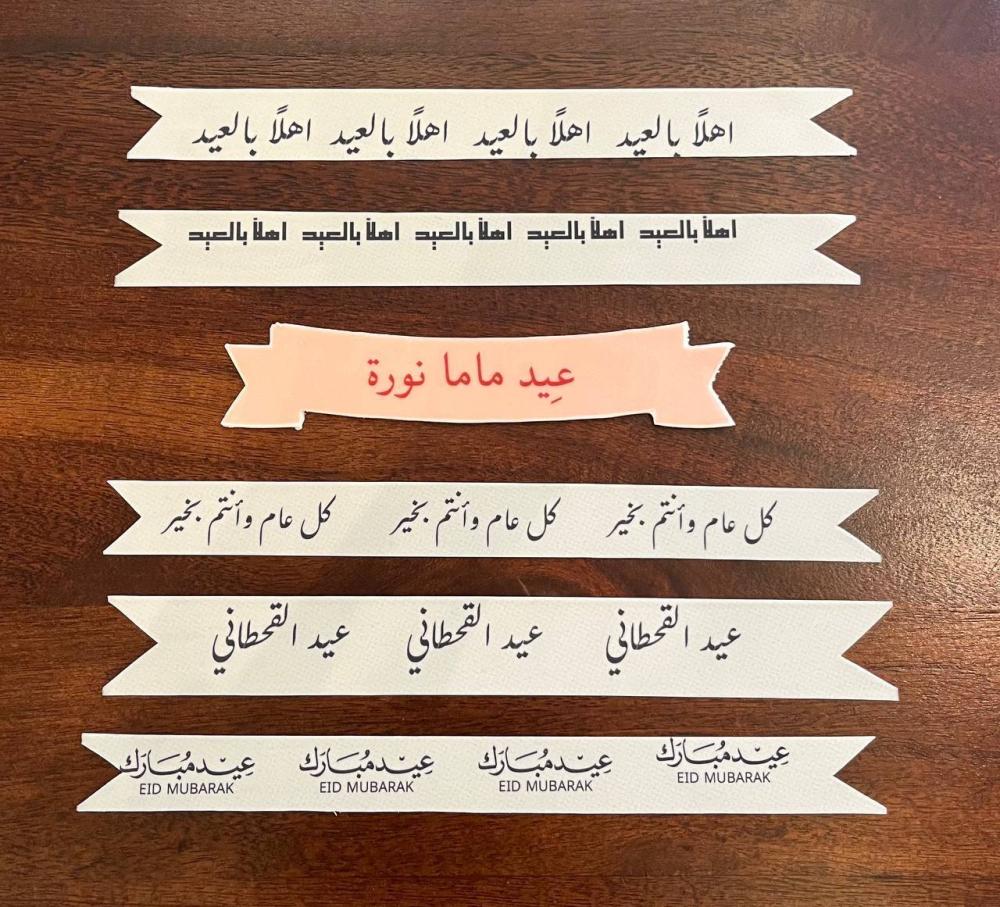 اهلًا بالعيد اهلًا بالعيد اهلًا بالعيد اهلًا بالعيد
اهلاً بالعيد اهلاً بالعيد اهلاً بالعيد اهلاً بالعيد اهلاً بالعيد
عِيد ماما نورة
كل عام وأنتم بخير كل عام وأنتم بخير كل عام وأنتم بخير
عيد القحطاني عيد القحطاني عيد القحطاني
عِيد مُبَارَك عِيد مُبَارَك عِيد مُبَارَك عِيد مُبَارَك
EID MUBARAK EID MUBARAK EID MUBARAK EID MUBARAK